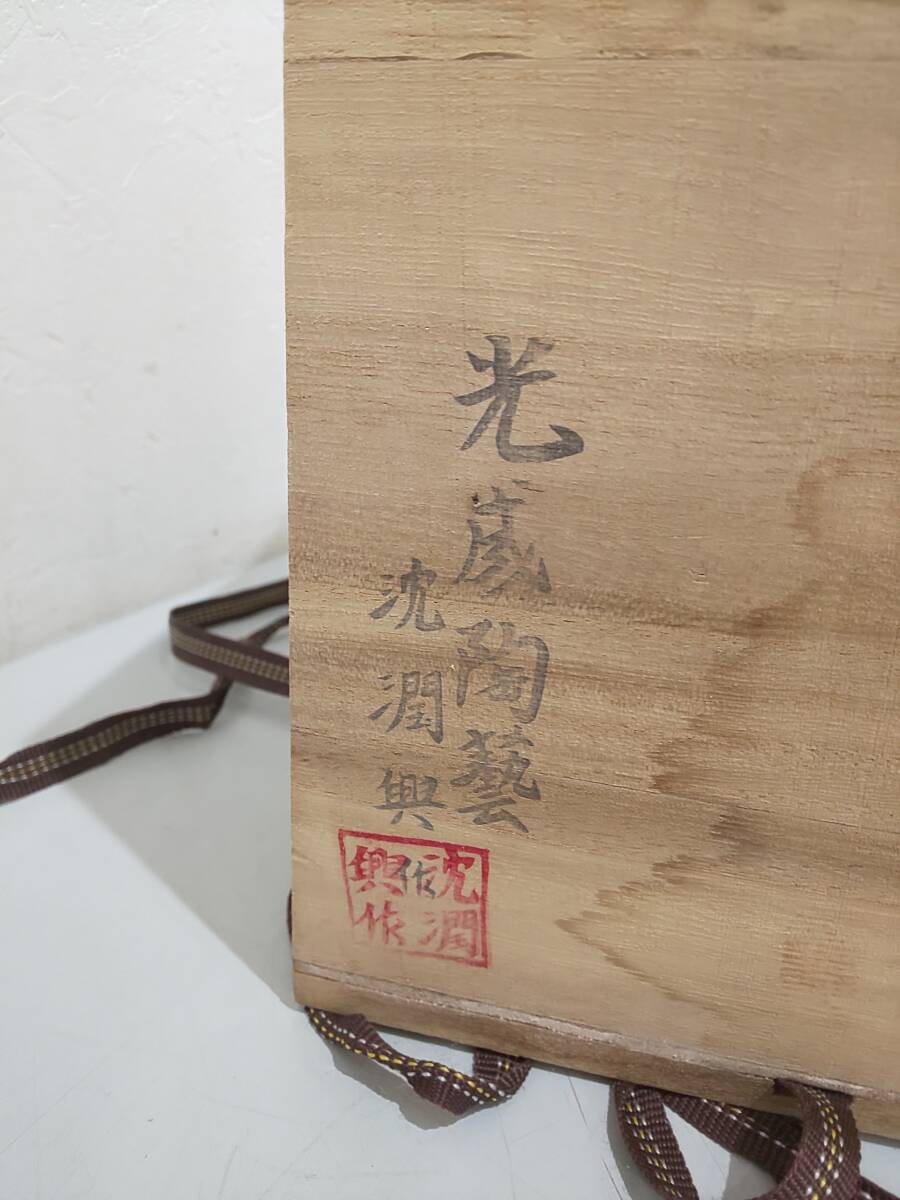 光歳陶藝
沈潤興作
沈潤
興作